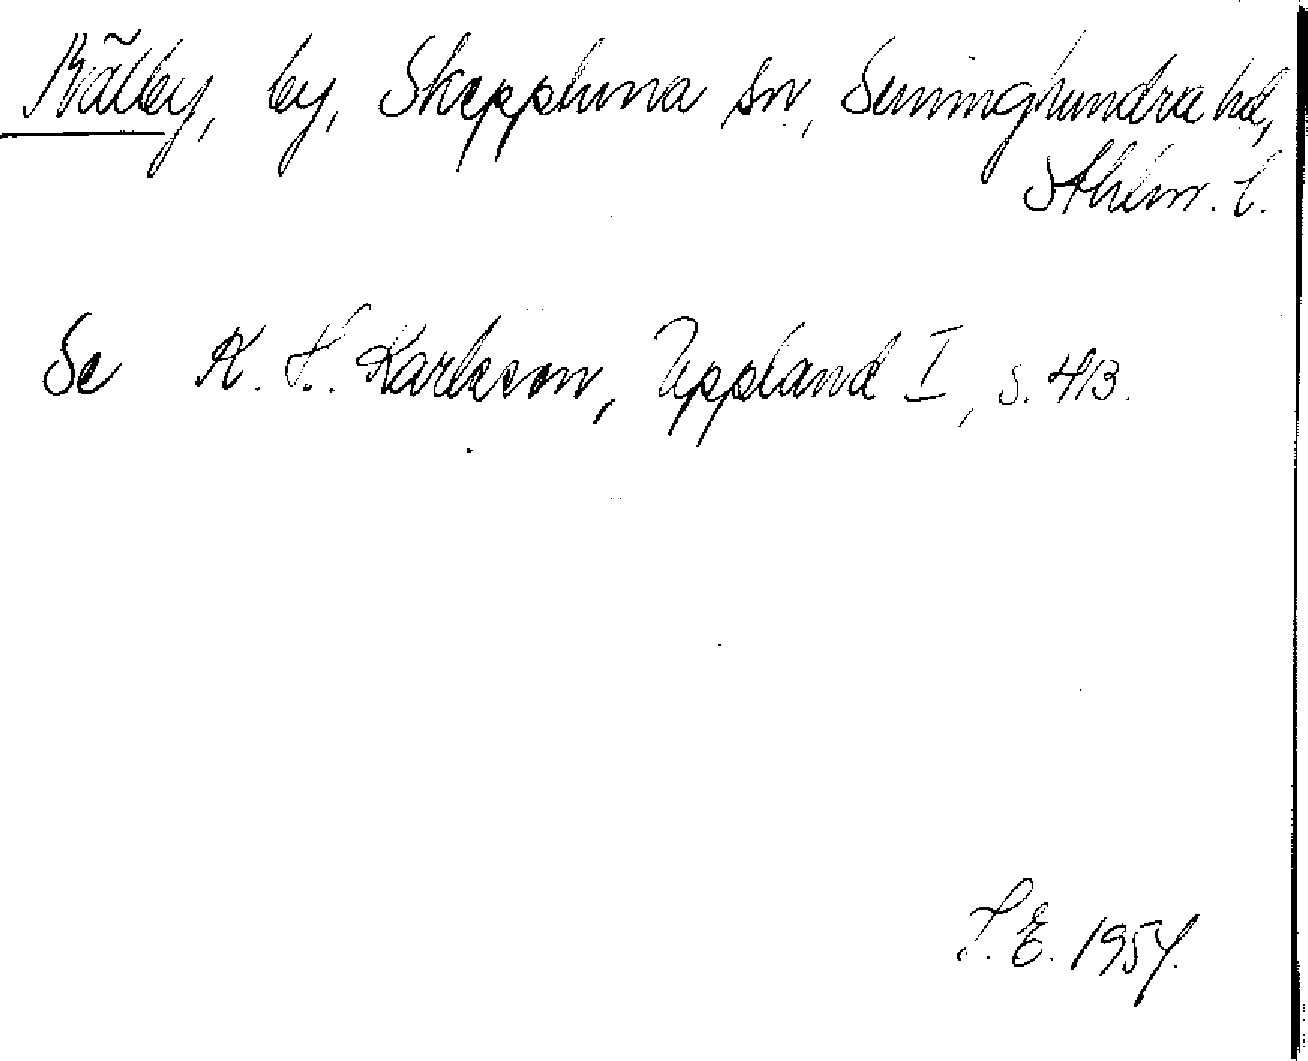 Bälby, by, Skepptuna sn, Seminghundra hd,
Sthlm. l.
Se K. H. Karlsson, Uppland I, s. 413.
T. E. 1954.